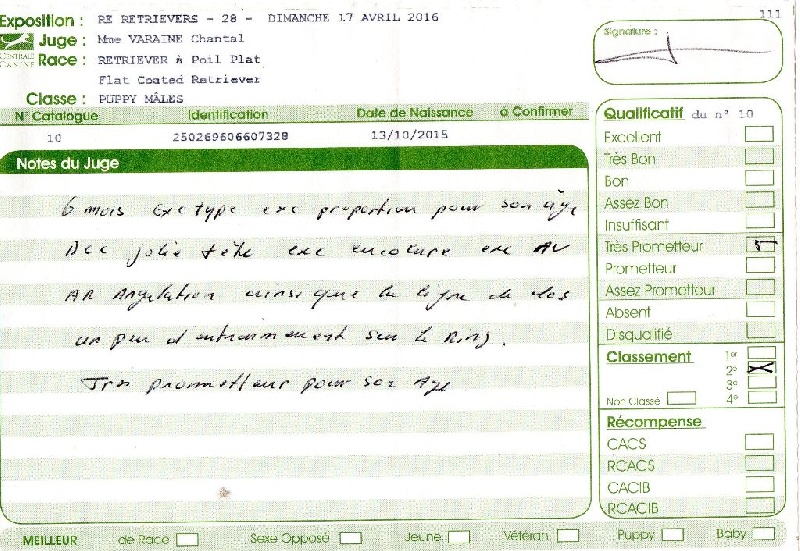 111
Exposition : RE RETRIEVERS - 28 - DIMANCHE 17 AVRIL 2016
Juge : Mme VARAINE Chantal
CENTRALE CANINE
Race : RETRIEVER à Poil Plat
Flat Coated Retriever
Classe : PUPPY MÂLES
Signature :
N° Catalogue Identification Date de Naissance à Confirmer
10 250269606607328 13/10/2015
Notes du Juge
6 mois exc type exc proportion pour son âge
jolie tête exc encolure exc AV
AR Angulation ainsi que la ligne de dos
un peu d'entrainement sur le Ring.
Tres prometteur pour son Age
Qualificatif du n° 10
Excellent
Très Bon
Bon
Assez Bon
Insuffisant
Très Prometteur
Prometteur
Assez Prometteur
Absent
Disqualifié
Classement 1er
2e
3e
Non Classé 4e
Récompense
CACS
RCACS
CACIB
RCACIB
MEILLEUR de Race Sexe Opposé Jeune Vétéran Puppy Baby